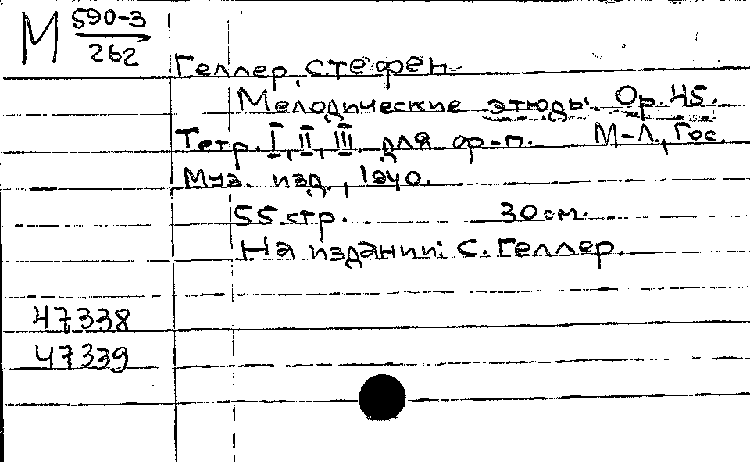 М 590-3
262
Геллер, Стефен
Мелодические этюды. Op. 45.
Тетр. I, II, III для ф-п. М-Л, Гос.
Муз. изд., 1940.
55 стр. 30 см.
На издании: С. Геллер.
47338
47339